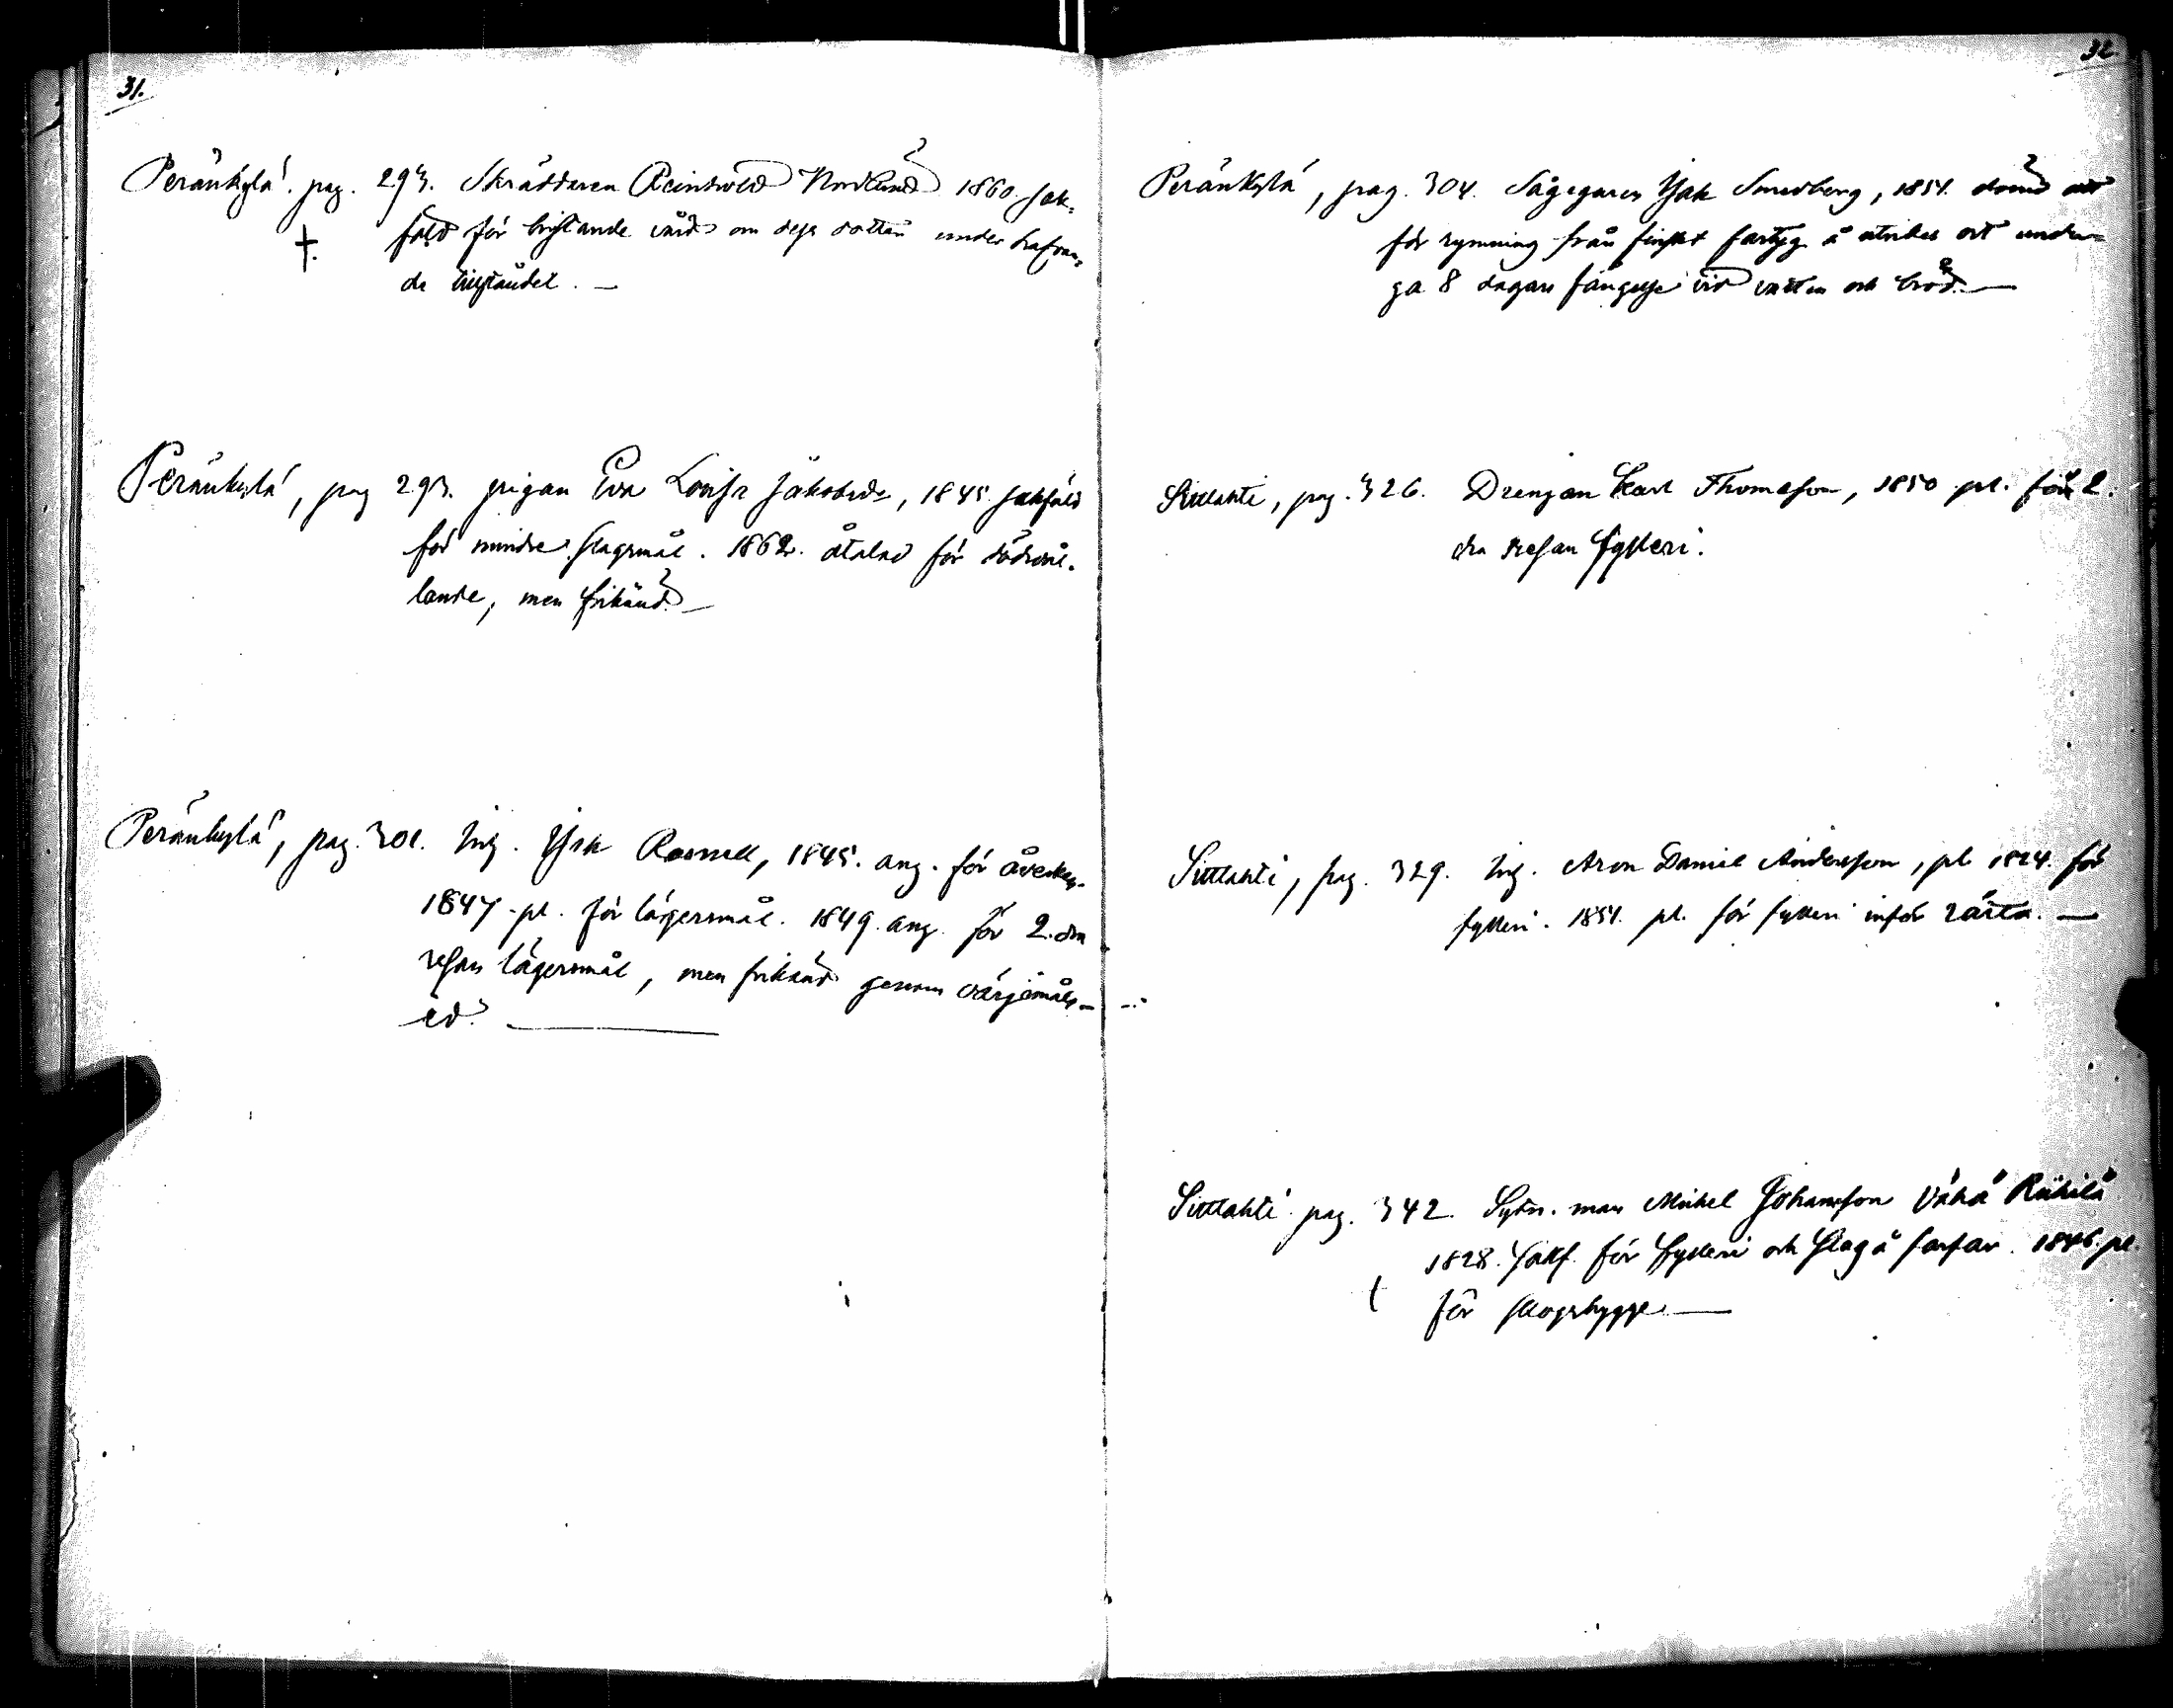 31.
Peränkylä. pag. 293. Skräddaren Reinhold Nordlund 1860. sak-
fäld för bristande vård om dess dotter under hafvan-
†. de tillståndet. —
Peränkylä, pag 293. pigan Eva Lovisa Jakobsdr, 1845 sakfäld
för mindre slagsmål. 1862. åtalad för dödvål-
lande, men frikänd. —
Peränkylä, pag. 301. Inh. Isak Rosnell, 1845. ang. för åverkan.
1847 pl. för lägersmål. 1849. ang. för 2. dra
resan lägersmål, men frikänd genom värjemåls-
ed. —
32.
Peränkylä, pag. 304. Sågegaren Isak Smedberg, 1854. dömd att
för rymning från finskt fartyg å utrikes ort under-
gå 8 dagars fängelse vid vatten och bröd. —
Sittlahti, pag. 326. Drengen Karl Thomasson, 1850 pl. för 2.
dra resan fylleri.
Sittlahti, pag. 329. Inh. Aron Daniel Andersson, pl 1824. för
fylleri. 1854. pl. för fylleri inför rätta. —
Sittlahti pag. 342. Sytn. man Mickel Johansson Vähä Riihilä
1828. sakf. för fylleri och slag å farfar. 1846. pl.
för skogshygge. —